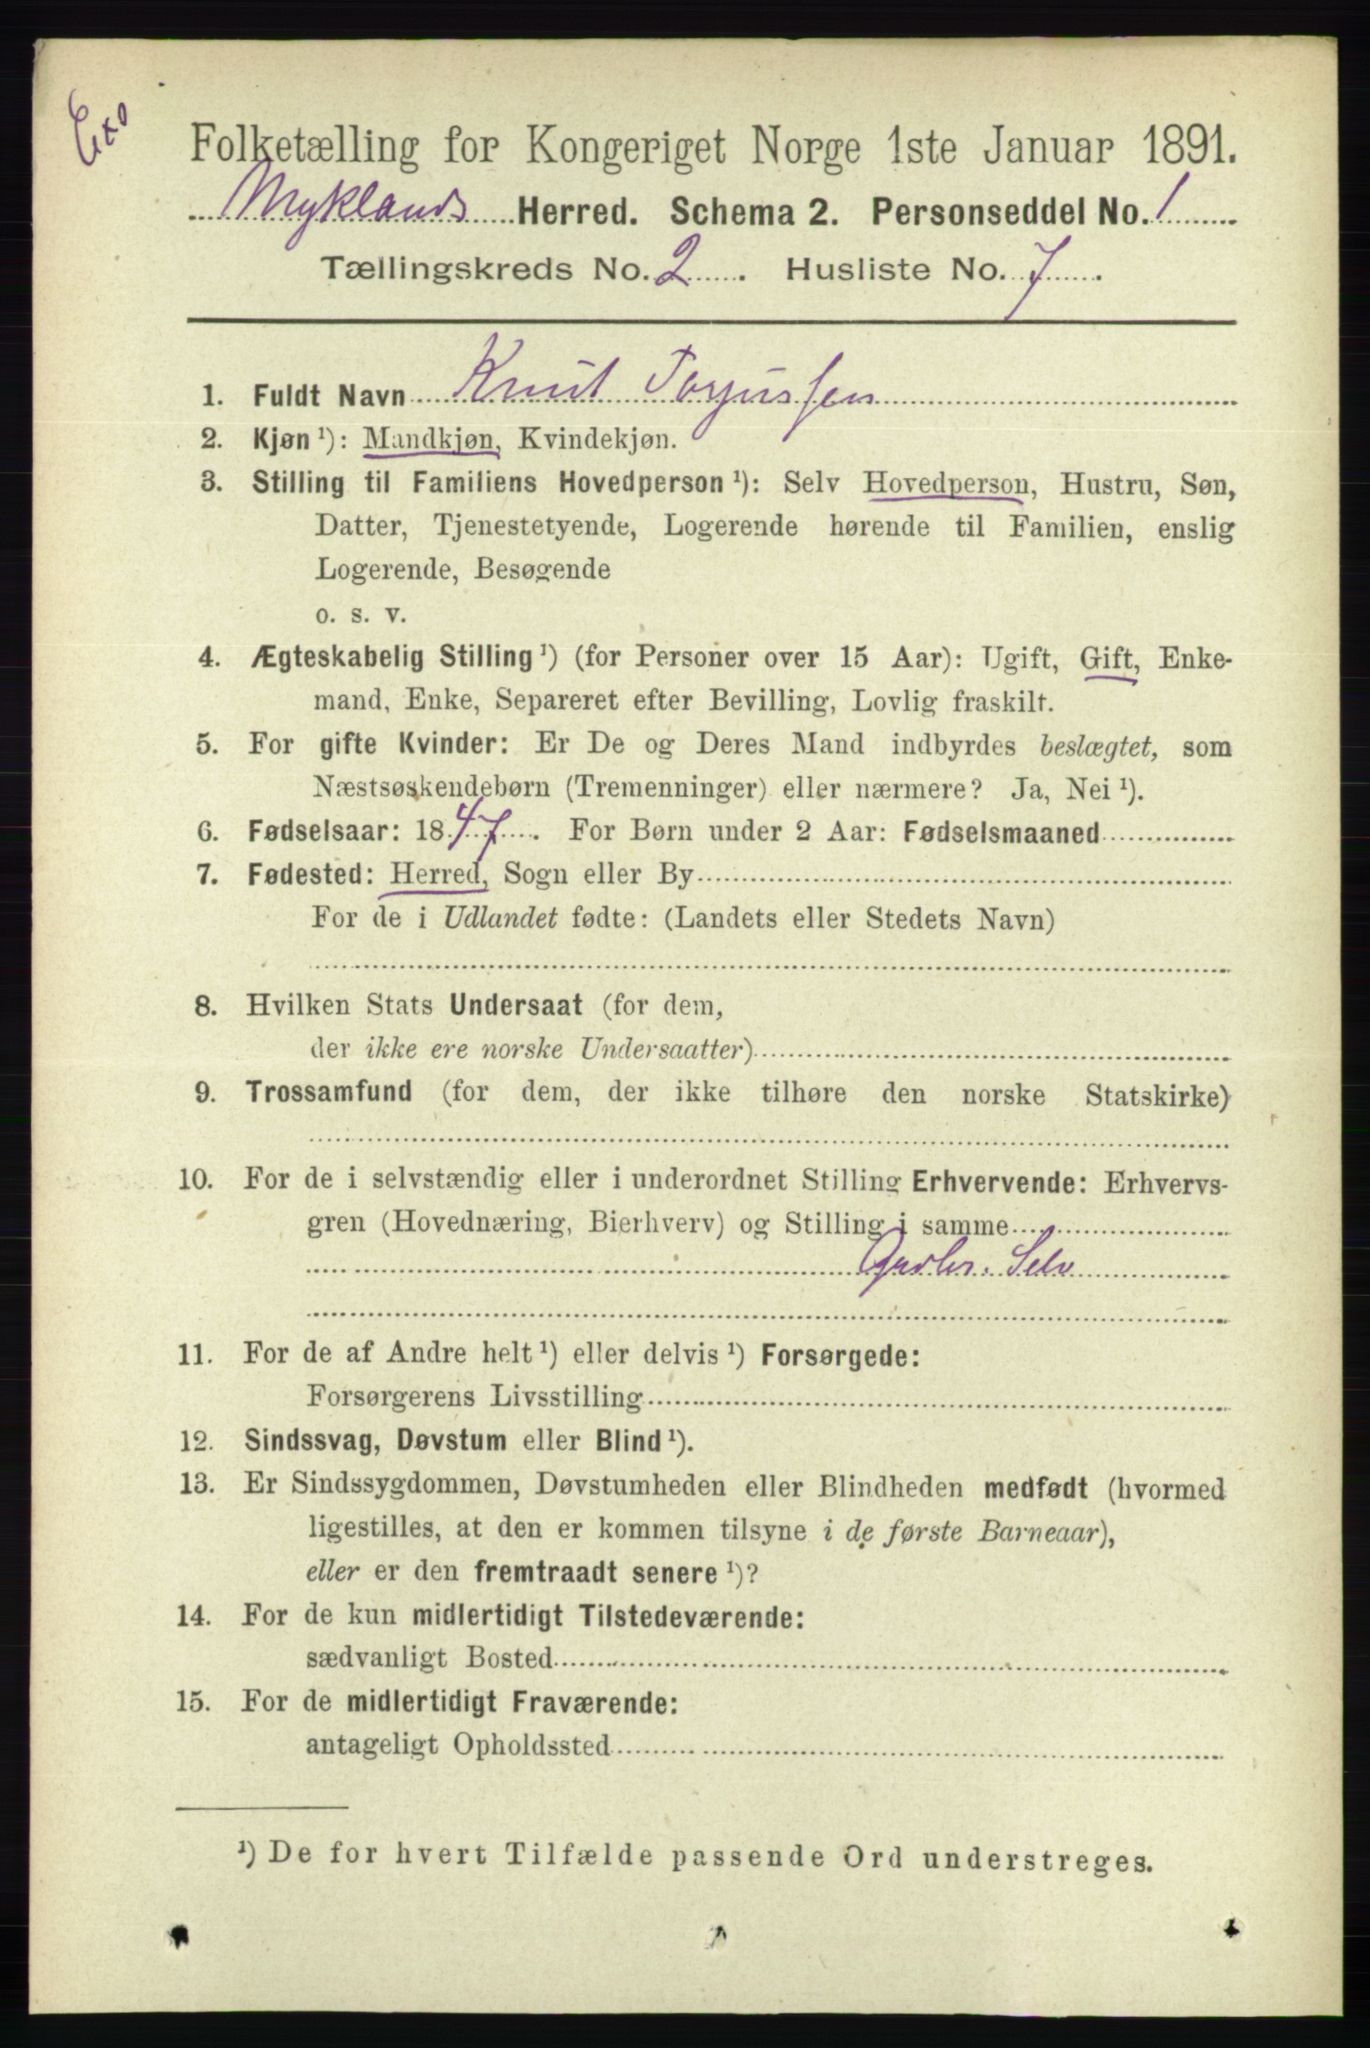 Exo
Folketælling for Kongeriget Norge 1ste Januar 1891.
Myklands Herred. Schema 2. Personseddel No. 1
Tællingskreds No. 2. Husliste No. 7.
1. Fuldt Navn Knut Torjussen
2. Kjøn ¹): Mandkjøn, Kvindekjøn.
3. Stilling til Familiens Hovedperson ¹): Selv Hovedperson, Hustru, Søn,
Datter, Tjenestetyende, Logerende hørende til Familien, enslig
Logerende, Besøgende
o. s. v.
4. Ægteskabelig Stilling ¹) (for Personer over 15 Aar): Ugift, Gift, Enke-
mand, Enke, Separeret efter Bevilling, Lovlig fraskilt.
5. For gifte Kvinder: Er De og Deres Mand indbyrdes beslægtet, som
Næstsøskendebørn (Tremenninger) eller nærmere? Ja, Nei ¹).
6. Fødselsaar: 1847. For Børn under 2 Aar: Fødselsmaaned
7. Fødested: Herred, Sogn eller By
For de i Udlandet fødte: (Landets eller Stedets Navn)
8. Hvilken Stats Undersaat (for dem,
der ikke ere norske Undersaatter)
9. Trossamfund (for dem, der ikke tilhøre den norske Statskirke)
10. For de i selvstændig eller i underordnet Stilling Erhvervende: Erhvervs-
gren (Hovednæring, Bierhverv) og Stilling i samme
Gaardbr. Selv
11. For de af Andre helt ¹) eller delvis ¹) Forsørgede:
Forsørgerens Livsstilling
12. Sindssvag, Døvstum eller Blind ¹).
13. Er Sindssygdommen, Døvstumheden eller Blindheden medfødt (hvormed
ligestilles, at den er kommen tilsyne i de første Barneaar),
eller er den fremtraadt senere ¹)?
14. For de kun midlertidigt Tilstedeværende:
sædvanligt Bosted
15. For de midlertidigt Fraværende:
antageligt Opholdssted
¹) De for hvert Tilfælde passende Ord understreges.